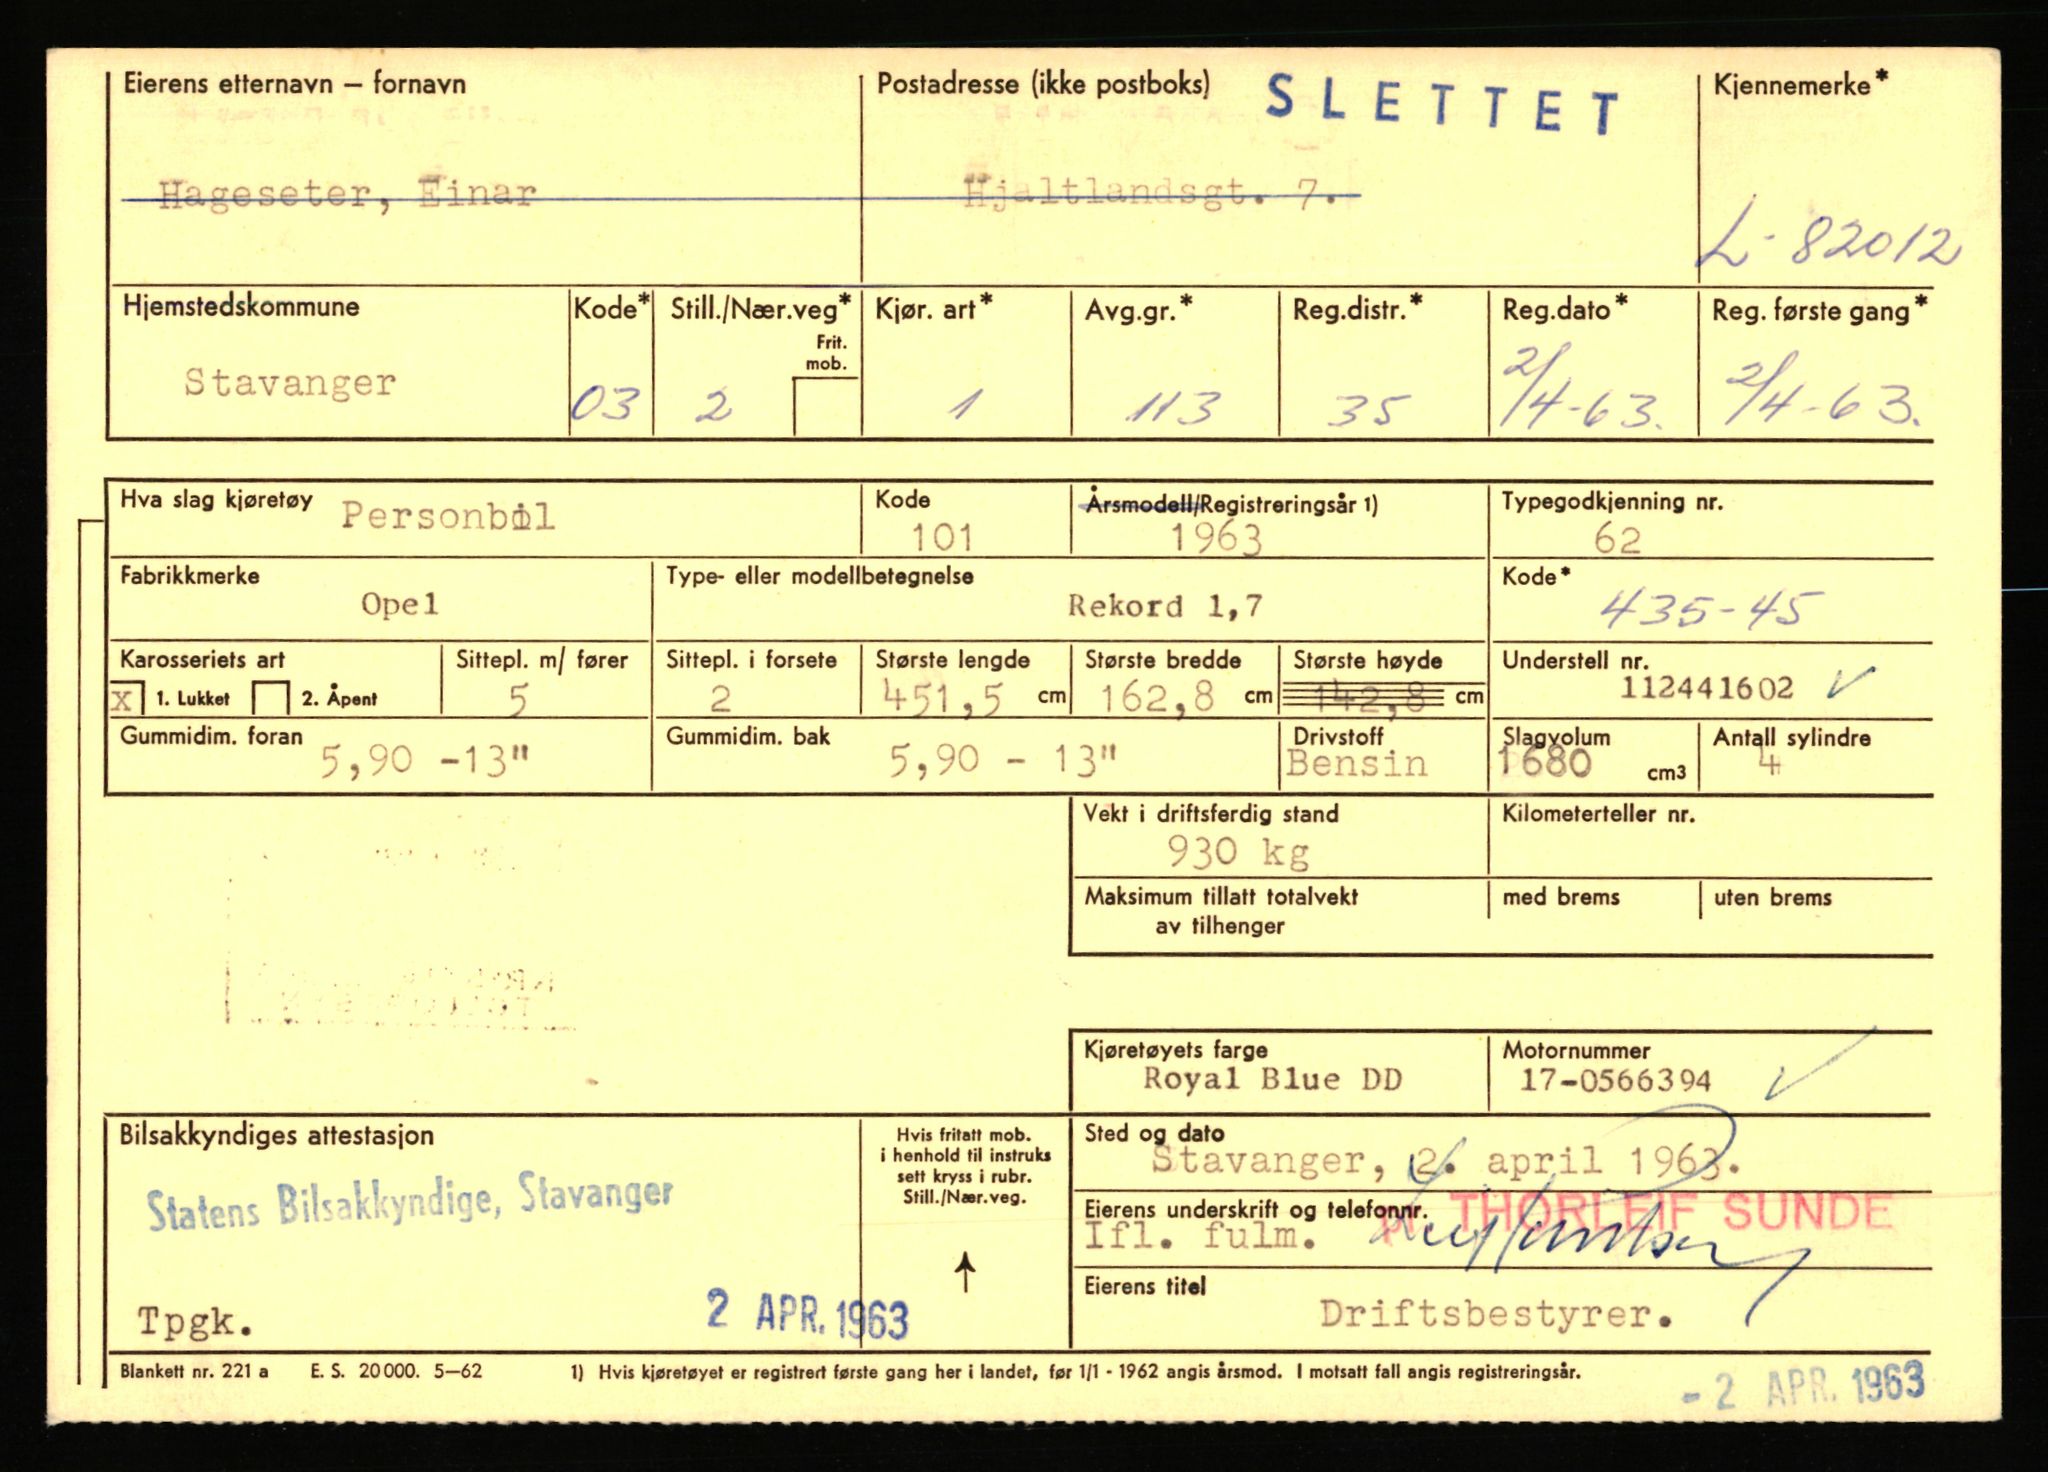 Eierens etternavn – fornavn
Postadresse (ikke postboks)
SLETTET
Kjennemerke*
Hageseter, Einar
Hjaltlandsgt. 7.
L-82012
Hjemstedskommune
Kode*
Still./Nær.veg*
Frit.
mob.
Kjør. art*
Avg.gr.*
Reg.distr.*
Reg.dato*
Reg. første gang*
Stavanger
03
2
1
113
35
2/4-63.
2/4-63.
Hva slag kjøretøy
Personbil
Kode
101
Årsmodell/Registreringsår 1)
1963
Typegodkjenning nr.
62
Fabrikkmerke
Opel
Type- eller modellbetegnelse
Rekord 1,7
Kode*
435-45
Karosseriets art
X 1. Lukket 2. Åpent
Sittepl. m/ fører
5
Sittepl. i forsete
2
Største lengde
451,5 cm
Største bredde
162,8 cm
Største høyde
142,8 cm
Understell nr.
112441602
Gummidim. foran
5,90 -13"
Gummidim. bak
5,90 - 13"
Drivstoff
Bensin
Slagvolum
1680 cm3
Antall sylindre
4
Vekt i driftsferdig stand
930 kg
Kilometerteller nr.
Maksimum tillatt totalvekt
av tilhenger
med brems
uten brems
Kjøretøyets farge
Royal Blue DD
Motornummer
17-0566394
Bilsakkyndiges attestasjon
Statens Bilsakkyndige, Stavanger
Tpgk.
2 APR. 1963
Hvis fritatt mob.
i henhold til instruks
sett kryss i rubr.
Still./Nær.veg.
Sted og dato
Stavanger, 2. april 1963.
Eierens underskrift og telefonnr.
Ifl. fulm.
THORLEIF SUNDE
Eierens titel
Driftsbestyrer.
Blankett nr. 221 a E. S. 20000. 5–62 1) Hvis kjøretøyet er registrert første gang her i landet, før 1/1 - 1962 angis årsmod. I motsatt fall angis registreringsår.
- 2 APR. 1963